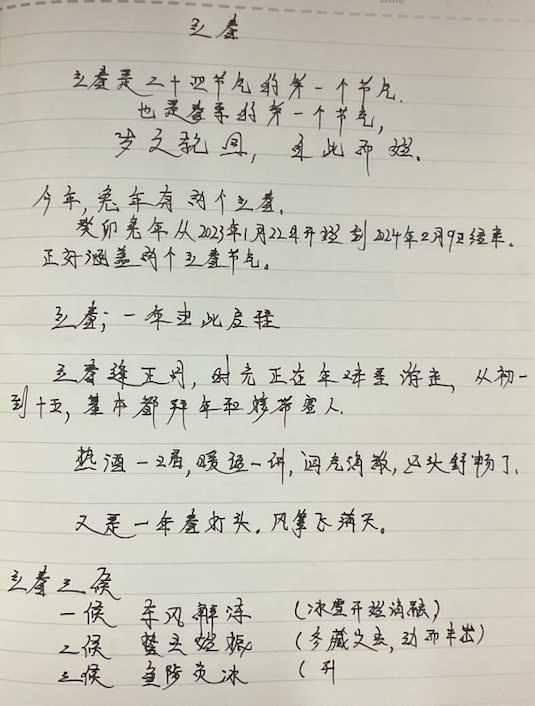 立春
立春是二十四节气的第一个节气.
也是春季的第一个节气,
岁之乾图, 由此而始.
今年, 兔年有两个立春.
癸卯兔年从2023年1月22日开始到2024年2月9日结束.
正好涵盖两个立春节气。
立春; 一年由此启程
立春逢正月, 时光正在年味里游走, 从初一
到十五, 基本都拜年和接待客人.
热酒一喝, 暖语一讲, 闷气消散, 心头舒畅了.
又是一年春打头. 风筝飞满天。
立春三候
一候 东风解冻 (冰雪开始消融)
二候 蛰虫始振 (冬藏之虫, 动而未出)
三候 鱼陟负冰 (到